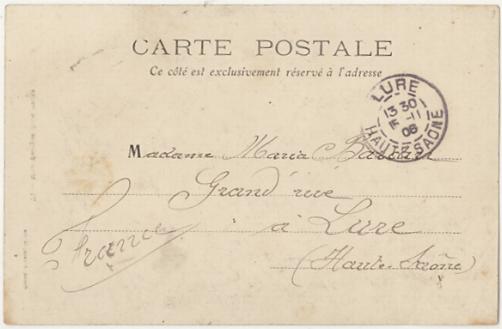 CARTE POSTALE
Ce côté est exclusivement réservé à l'adresse
LURE
13 30
11
06
HAUTE-SAÔNE
Madame Maria
Grand'rue
à Lure
(Haute-Saône)
France